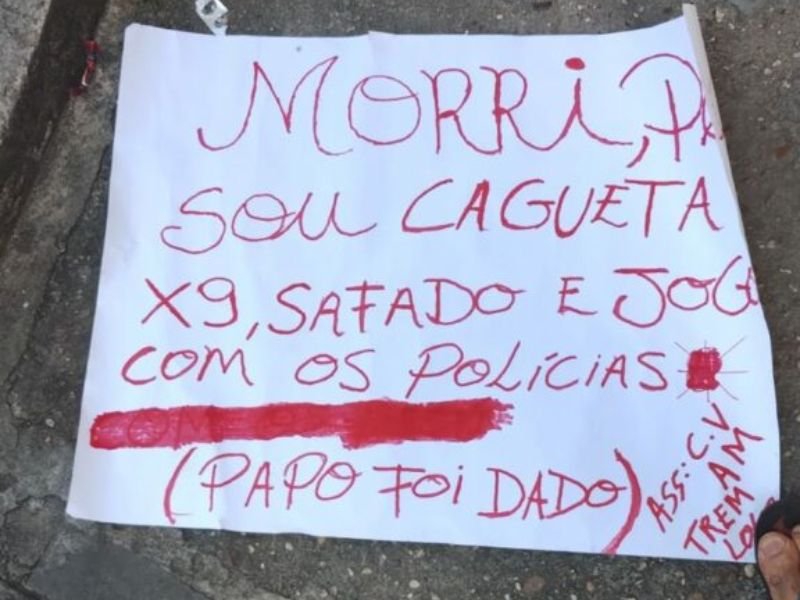 MORRi,
SOU CAGUETA
X9, SAFADO E JOG
COM OS POLÍCiAS
(PAPO FOi DADO)
ASS: C.V
TREMAM